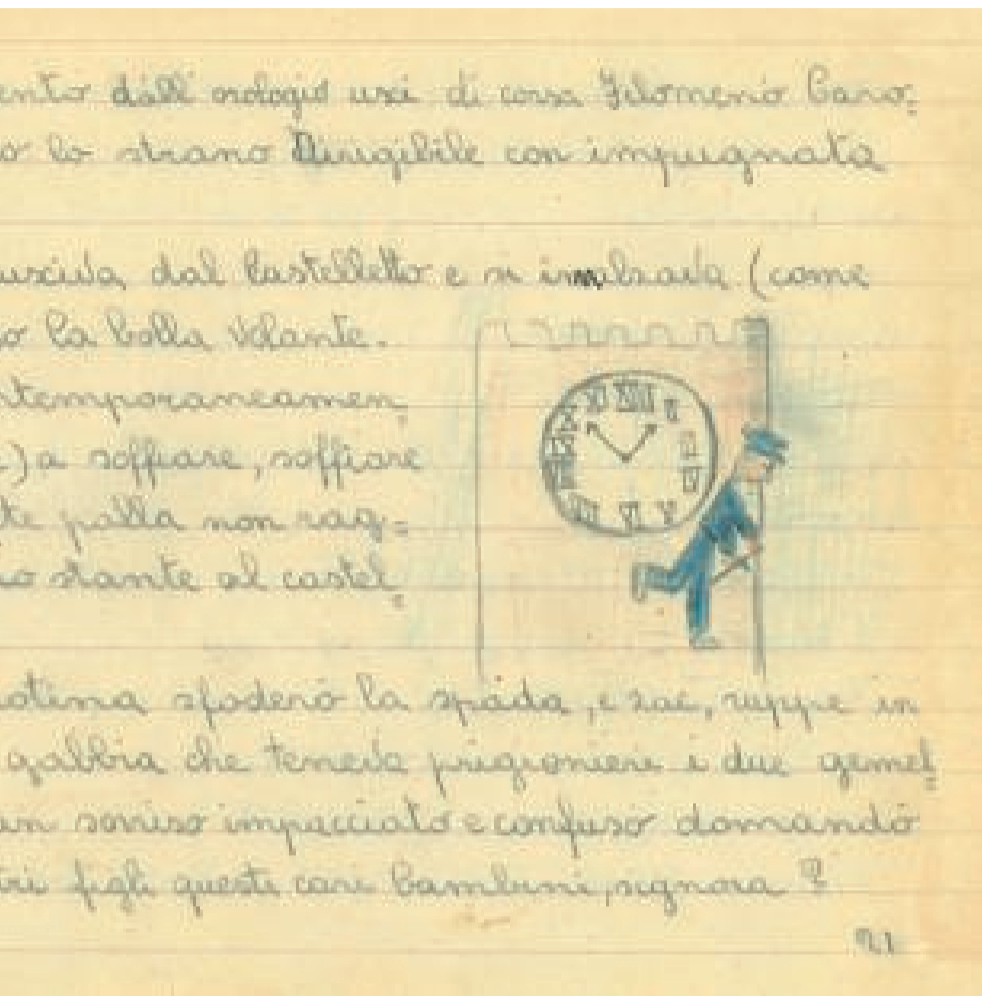 ento dall' orologio uscì di corsa Filomeno Caro=
o lo strano Dirigibile con impugnata
usciva dal Castelletto e si innalzava (come
o la bolla volante.
ntemporaneamen=
) a soffiare, soffiare
te palla non rag=
o stante al castel=
otina sfoderò la spada, e zac, ruppe in
gabbia che teneva prigionieri i due gemel=
un sorriso impacciato e confuso domandò
tri figli questi cari bambini, signora?
21